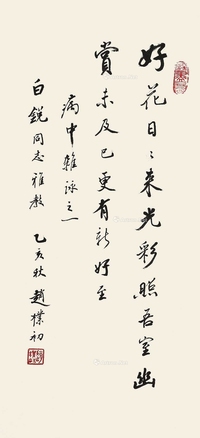 好花日〻来光彩照吾室幽
赏未及已更有新好至
病中雜詠之一
白銳同志雅教
乙亥秋趙樸初